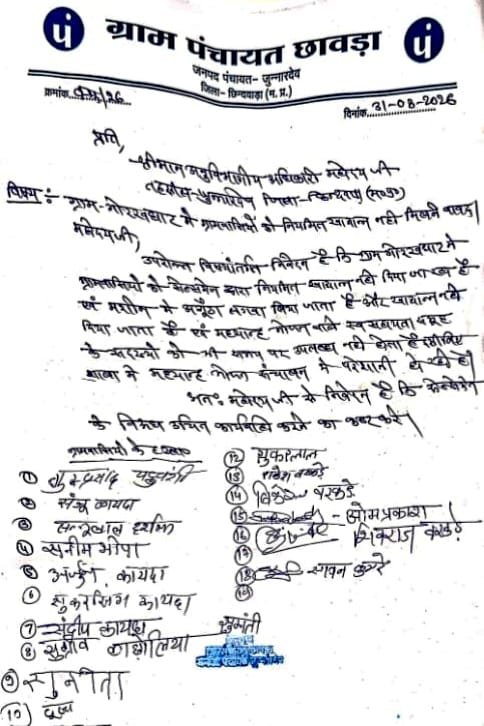 पं ग्राम पंचायत छावड़ा पं
जनपद पंचायत- जुन्नारदेव
जिला- छिन्दवाड़ा (म.प्र.)
क्रमांक
दिनांक 31-03-2026
प्रति,
श्रीमान अनुविभागीय अधिकारी महोदय जी
तहसील जुन्नारदेव जिला-छिन्दवाड़ा (म०प्र०)
विषय : ग्राम-गोरखघाट मे ग्रामवासियों को नियमित खाद्यान्न नही मिलने बावत।
महोदय जी,
उपरोक्त विषयांतर्गत निवेदन है कि ग्राम गोरखघाट मे
ग्रामवासियों को सेल्समेन द्वारा नियमित खाद्यान्न नही दिया जा रहा है
एवं मशीन मे अंगूठा लगवा लिया जाता है और खाद्यान्न नही
दिया जाता है एवं मध्यान्ह भोजन वाले स्व सहायता समूह
के सदस्यों को भी समय पर उपलब्ध नही होता है इसलिए
शाला मे मध्यान्ह भोजन संचालन मे परेशानी हो रही है।
अतः महोदय जी से निवेदन है कि सेल्समेन
के विरूध उचित कार्यवाही करने का कष्ट करे।
ग्रामवासियों के हस्ताक्षर
① गुरूप्रसाद यदुवंशी
② संजु कायदा
③
④ सुनीम भोपा
⑤ अर्जुन कायदा
⑥ सुकरसिंग कायदा
⑦ संदीप कायदा
⑧ सुग्रीव
⑨ सुनीता
⑩
सुमंती
⑫ सुकरलाल
⑬
⑭ विवेक बरकडे
⑮ ओमप्रकाश
⑯ शिवराज
⑰
⑱
⑲